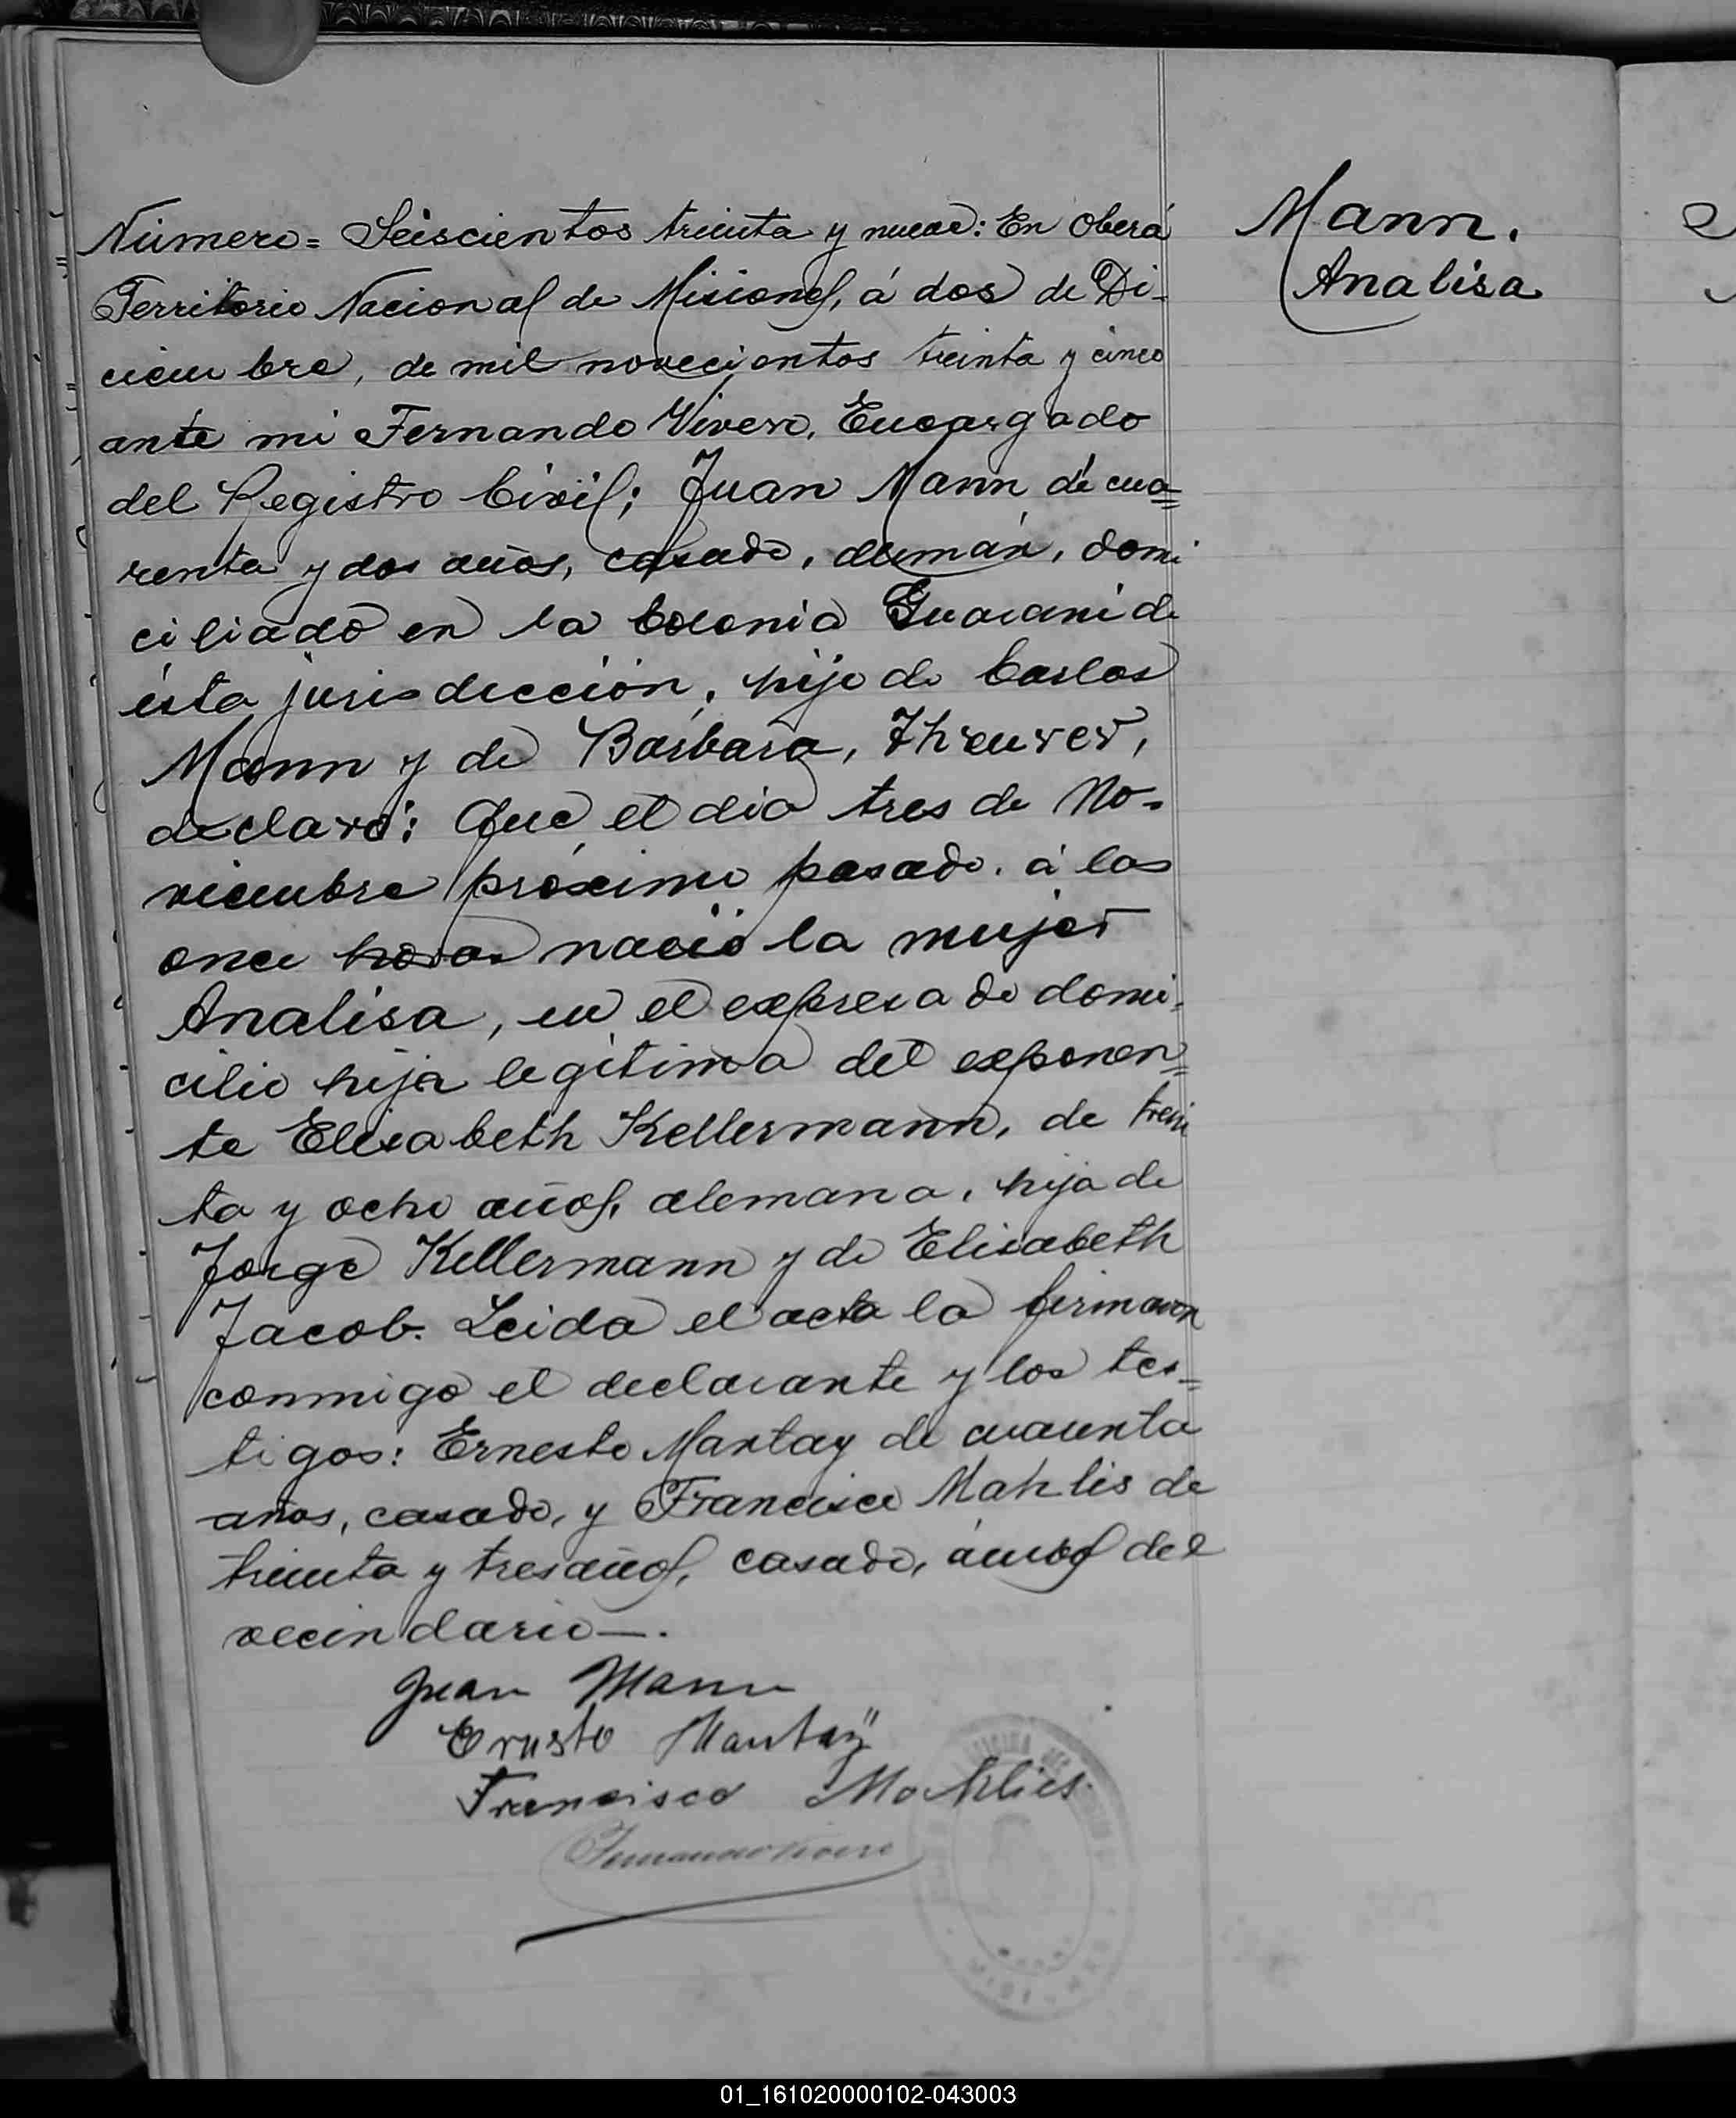 Mann.
Analisa
Número = Seiscientos treinta y nueve: En Oberá
Territorio Nacional de Misiones, á dos de Di-
ciembre, de mil novecientos treinta y cinco
ante mi Fernando Vivero, Encargado
del Registro Civil; Juan Mann de cua=
renta y dos años, casado, alemán, domi
ciliado en la Colonia Guarani de
esta jurisdicción, hijo de Carlos
Mann y de Barbara, Threurer,
declaró: Que el dia tres de No-
viembre próximo pasado. á las
once horas nació la mujer
Analisa, en el expresado domi-
cilio hija legitima del exponen=
te Elisabeth Kellermann, de trein
ta y ocho años, alemana, hija de
Jorge Kellermann y de Elisabeth
Jacob. Leida el acta la firmaron
conmigo el declarante y los tes=
tigos: Ernesto Mantay de cuarenta
años, casado, y Francisco Mahlis de
treinta y tres años, casado, ámbos del
vecindario—.
Juan Mann
Ernesto Mantaÿ
Francisco Mahlies
Fernando Vivero
01_161020000102-043003